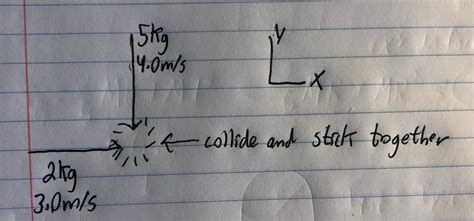 5kg
4.0m/s
y
x
collide and stick together
2kg
3.0m/s